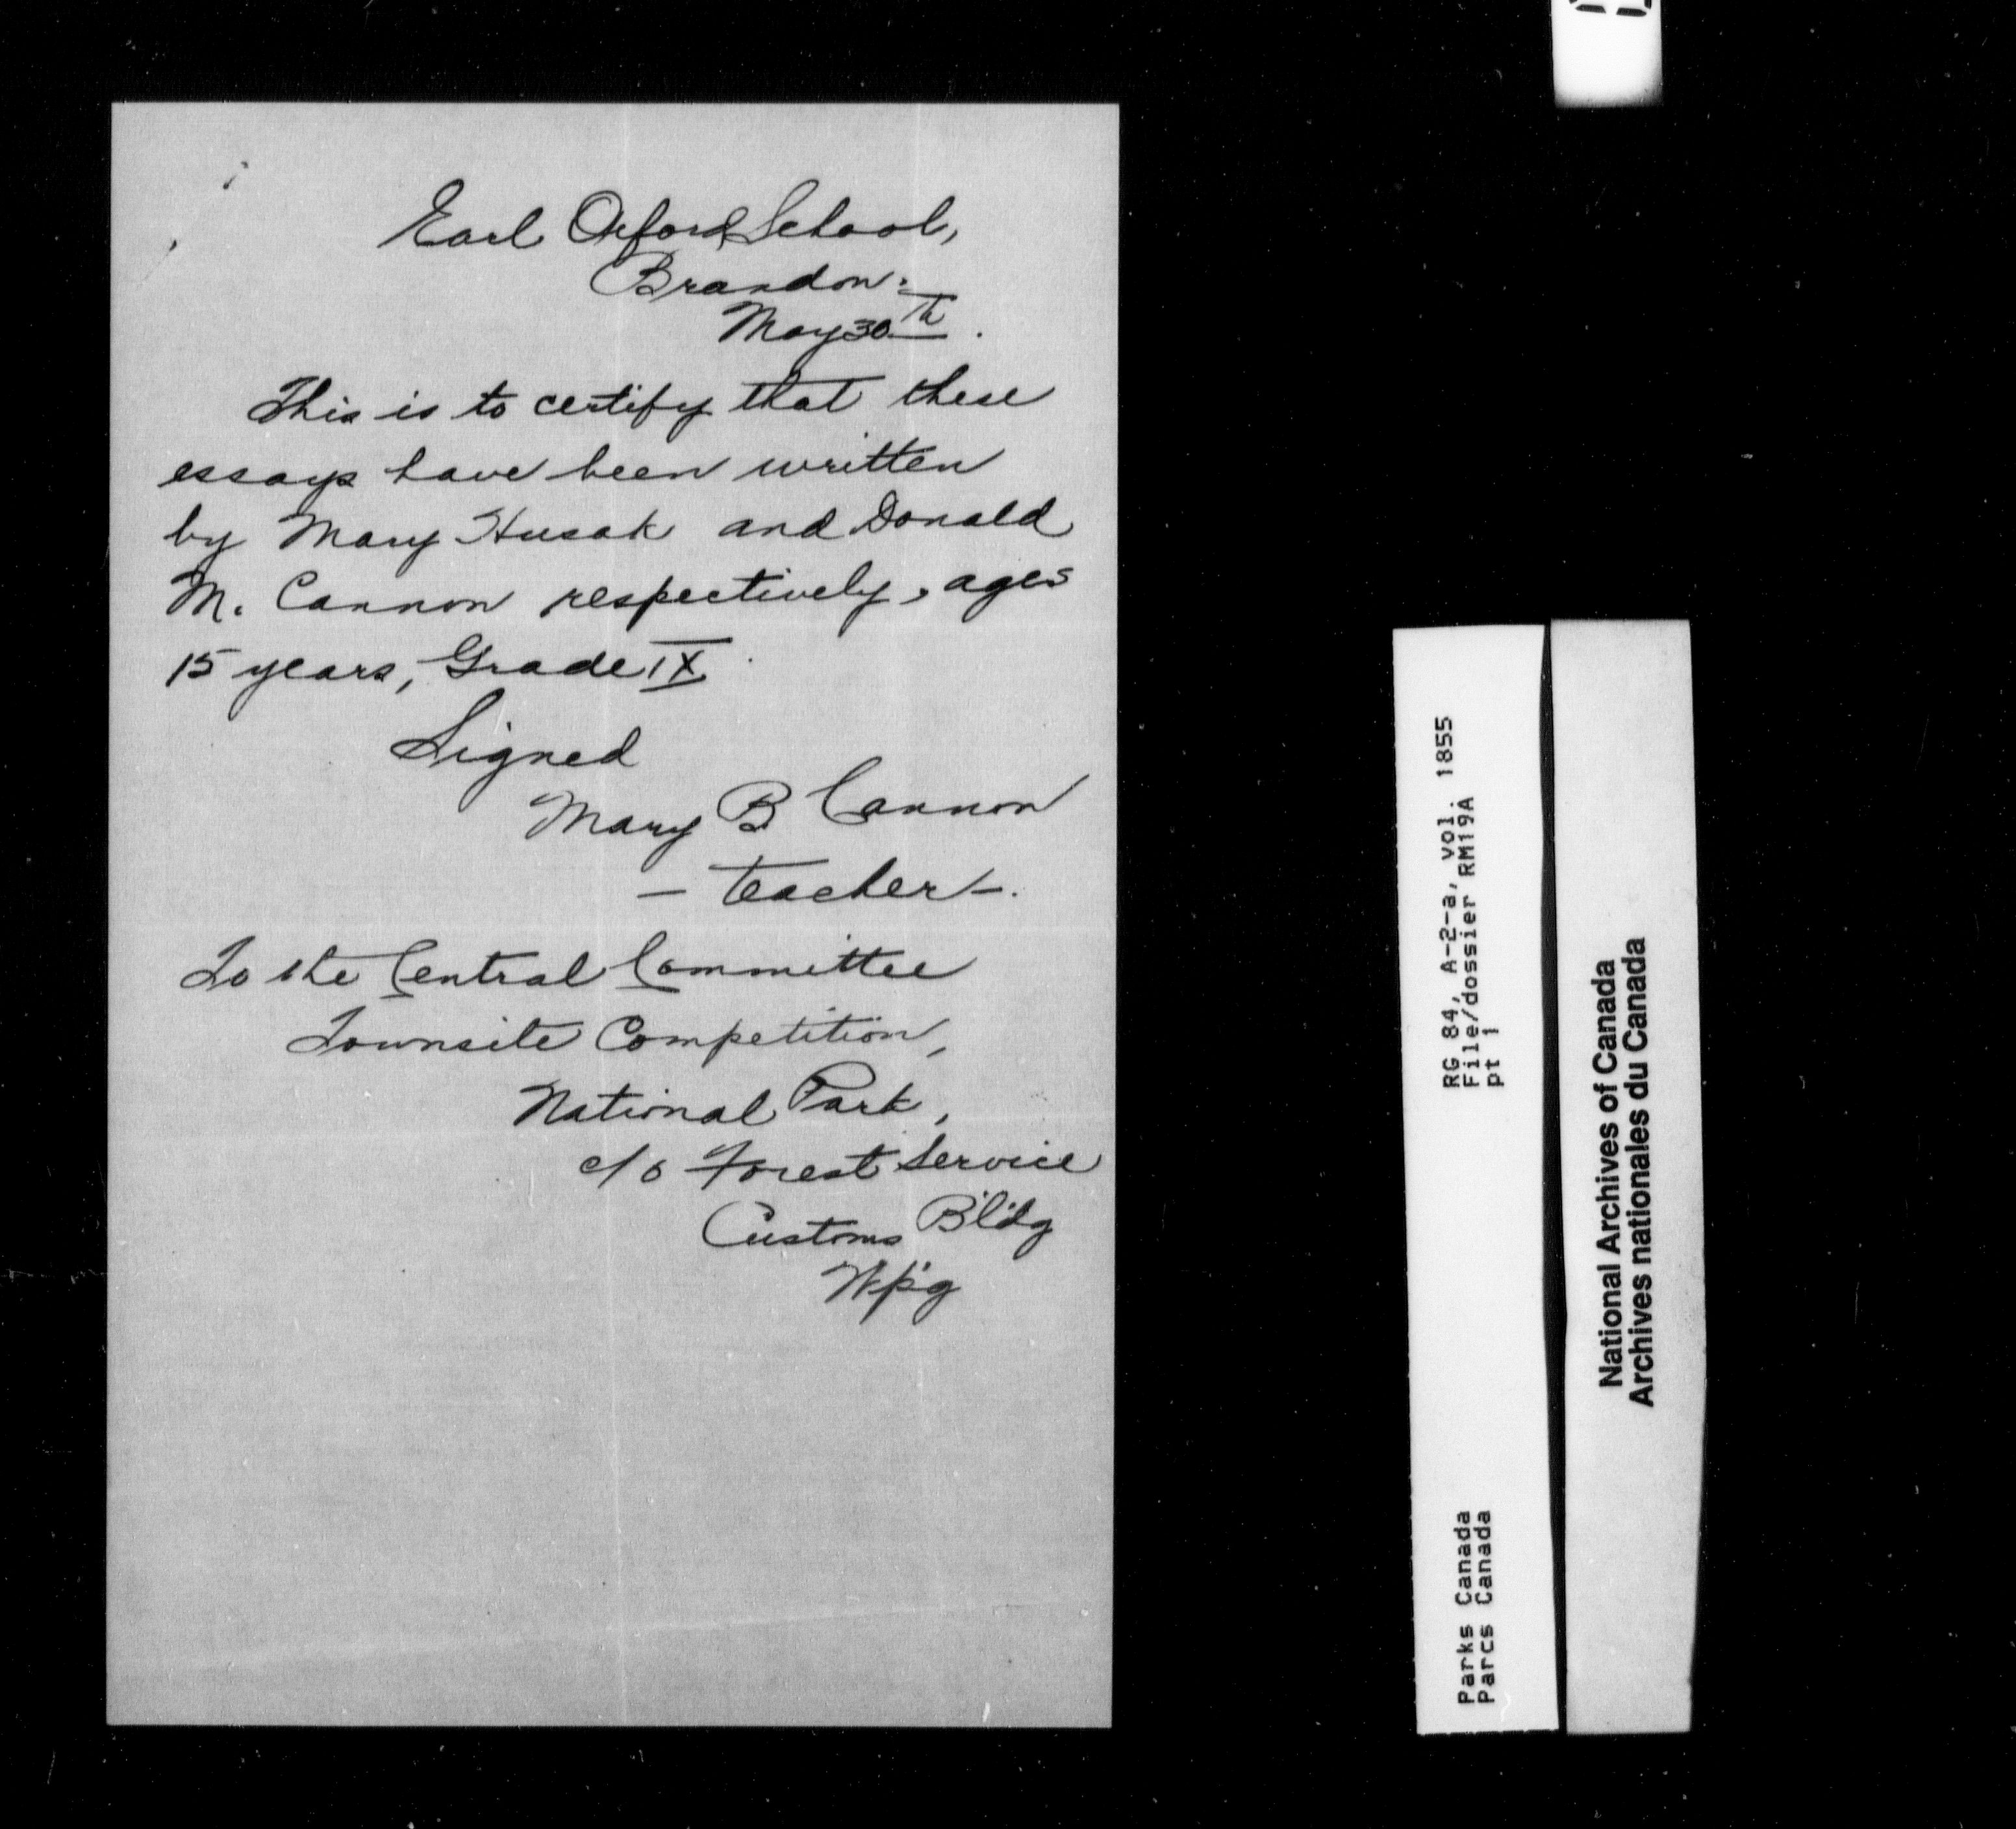 Earl Oxford School,
Brandon.
May 30th.
This is to certify that these
essays have been written
by Mary Husak and Donald
M. Cannon respectively, ages
15 years, Grade IX.
Signed
Mary B. Cannon
- teacher -.
To the Central Committee
Townsite Competition,
National Park,
c/o Forest Service
Customs B'ldg
W'p'g
RG 84, A-2-a, vol. 1855
File/dossier RM19A
pt 1
Parks Canada
Parcs Canada
National Archives of Canada
Archives nationales du Canada